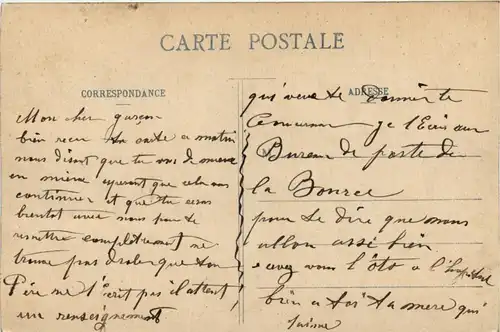 CARTE POSTALE
CORRESPONDANCE
Mon cher garçon
bien recu ta carte ce matin
nous disant que tu vas de mieux
en mieux esperant que cela vas
continuer et que tu seras
bientot avec nous pour te
remettre complètement ne
trouve pas drole que ton
Père ne t'écrit pas il attent
un renseignement
ADRESSE
qui veux te
je l'Ecris au
Bureau de poste de
la Bource
pour te dire que nous
allon assé bien
avez vous l'oto a l'hopital
bien a toi ta mere qui
t'aime